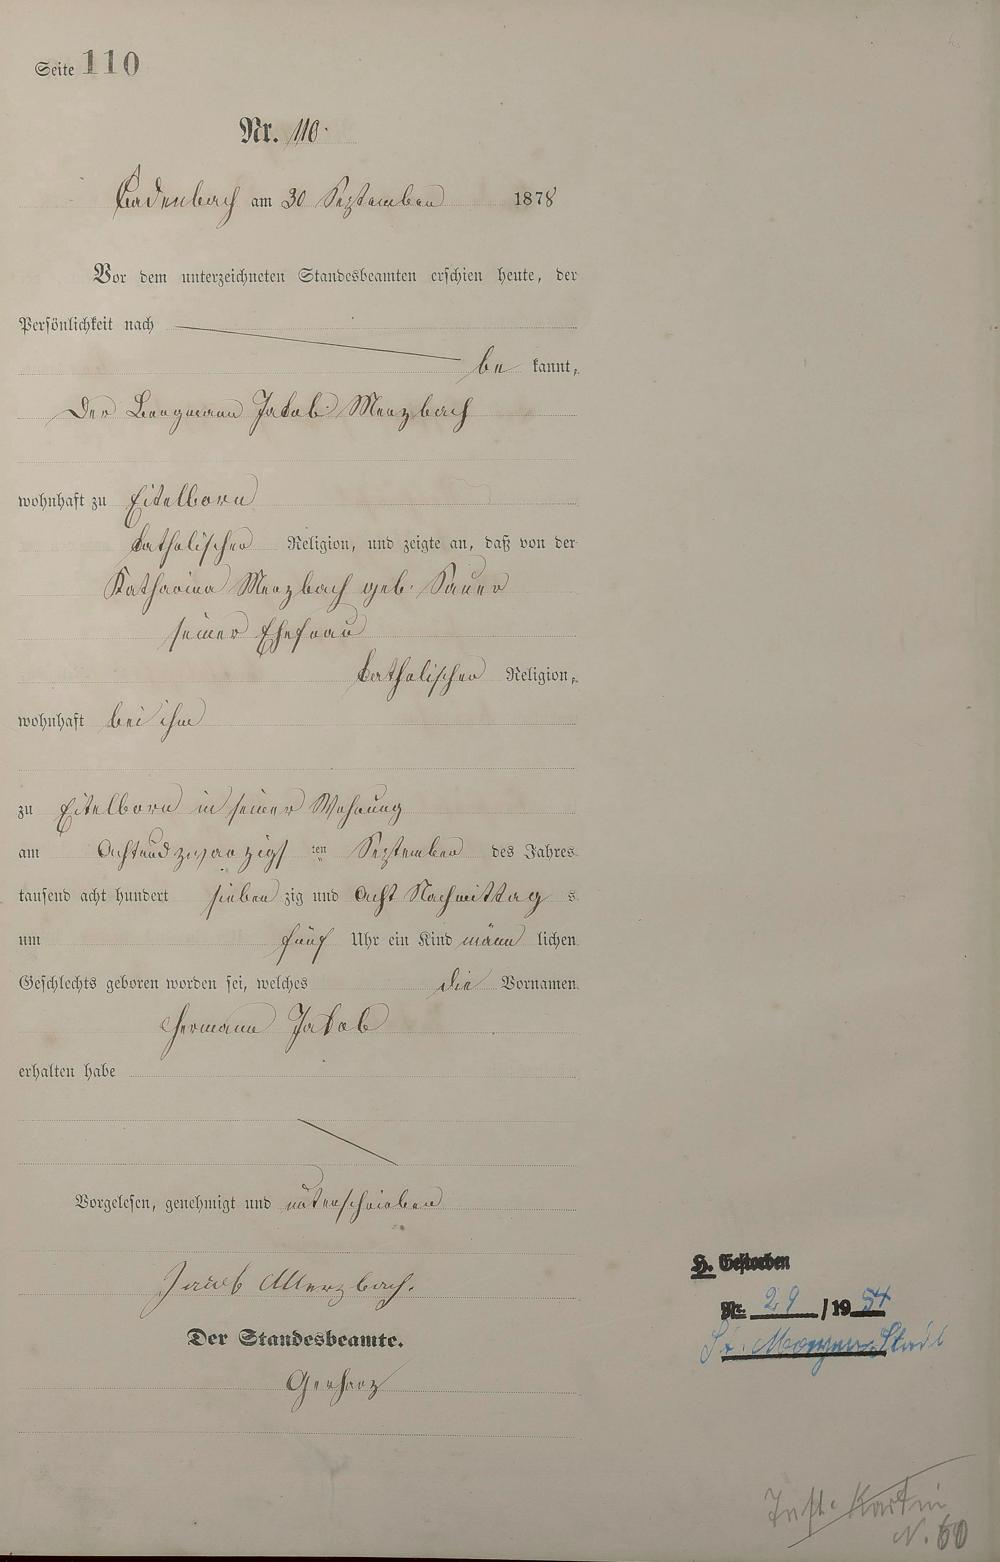 Seite 110
Nr. 110.
Cadenbach am 30 September 1878
Vor dem unterzeichneten Standesbeamten erschien heute, der
Persönlichkeit nach
be kannt,
Der Bergmann Jakob Merzbach
wohnhaft zu Eitelborn
katholischer Religion, und zeigte an, daß von der
Katharina Merzbach geb. Sauer
seiner Ehefrau
katholischer Religion,
wohnhaft bei ihm
zu Eitelborn in seiner Wohnung
am Achtundzwanzigs ten September des Jahres
tausend acht hundert sieben zig und acht Nachmittag s
um fünf Uhr ein Kind männ lichen
Geschlechts geboren worden sei, welches die Vornamen
Hermann Jakob
erhalten habe
Vorgelesen, genehmigt und unterschrieben
Jacob Merzbach.
Der Standesbeamte.
Gerharz
H. Gestorben
Nr. 29 / 19 54
N. 60